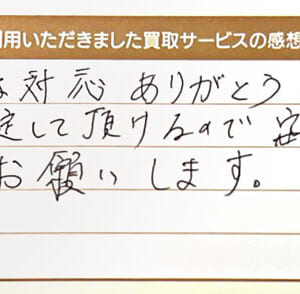 用いただきました買取サービスの感想
な対応 ありがとう
定して頂けるので 安
お願いします。